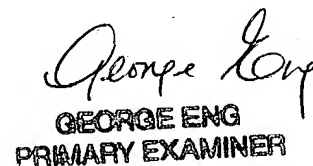 George Eng
GEORGE ENG
PRIMARY EXAMINER